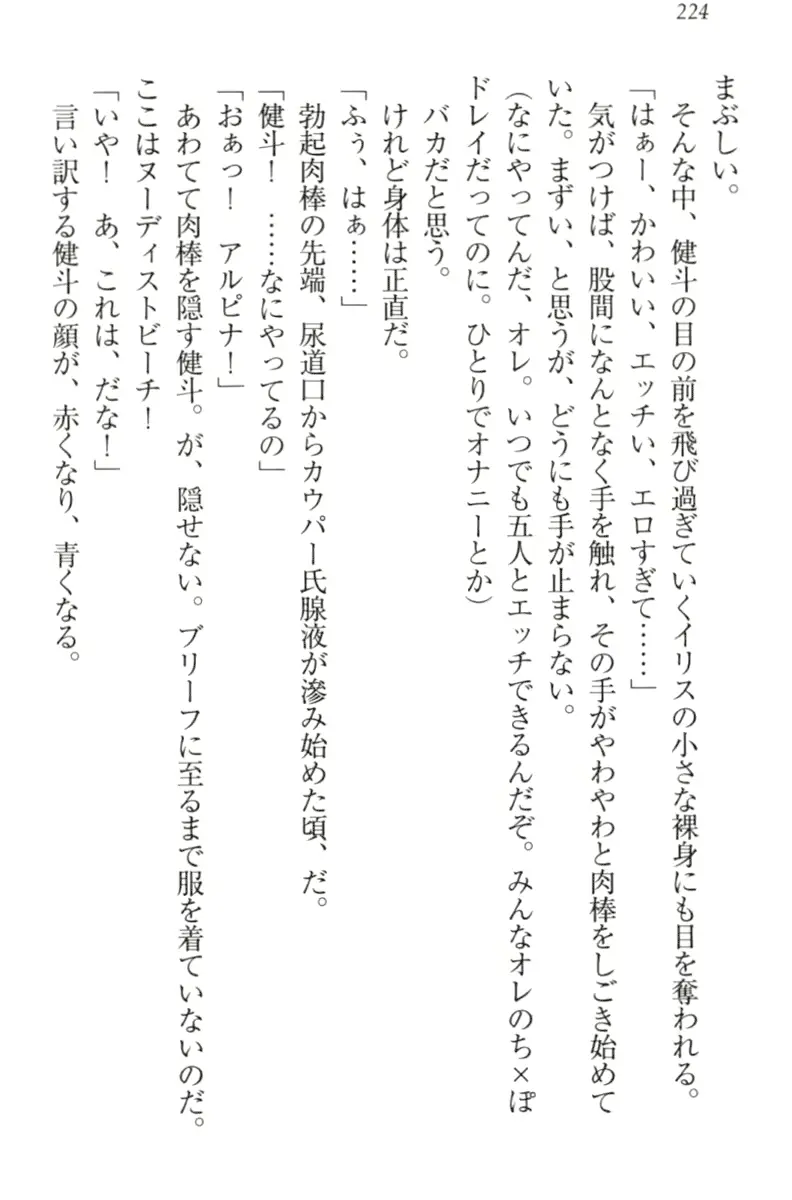 224
まぶしい。
そんな中、健斗の目の前を飛び過ぎていくイリスの小さな裸身にも目を奪われる。
「はぁー、かわいい、エッチい、エロすぎて……」
気がつけば、股間になんとなく手を触れ、その手がやわやわと肉棒をしごき始めて
いた。まずい、と思うが、どうにも手が止まらない。
(なにやってんだ、オレ。いつでも五人とエッチできるんだぞ。みんなオレのち×ぽ
ドレイだってのに。ひとりでオナニーとか)
バカだと思う。
けれど身体は正直だ。
「ふぅ、はぁ……」
勃起肉棒の先端、尿道口からカウパー氏腺液が滲み始めた頃、だ。
「健斗！　……なにやってるの」
「おぁっ！　アルピナ！」
あわてて肉棒を隠す健斗。が、隠せない。ブリーフに至るまで服を着ていないのだ。
ここはヌーディストビーチ！
「いや！　あ、これは、だな！」
言い訳する健斗の顔が、赤くなり、青くなる。